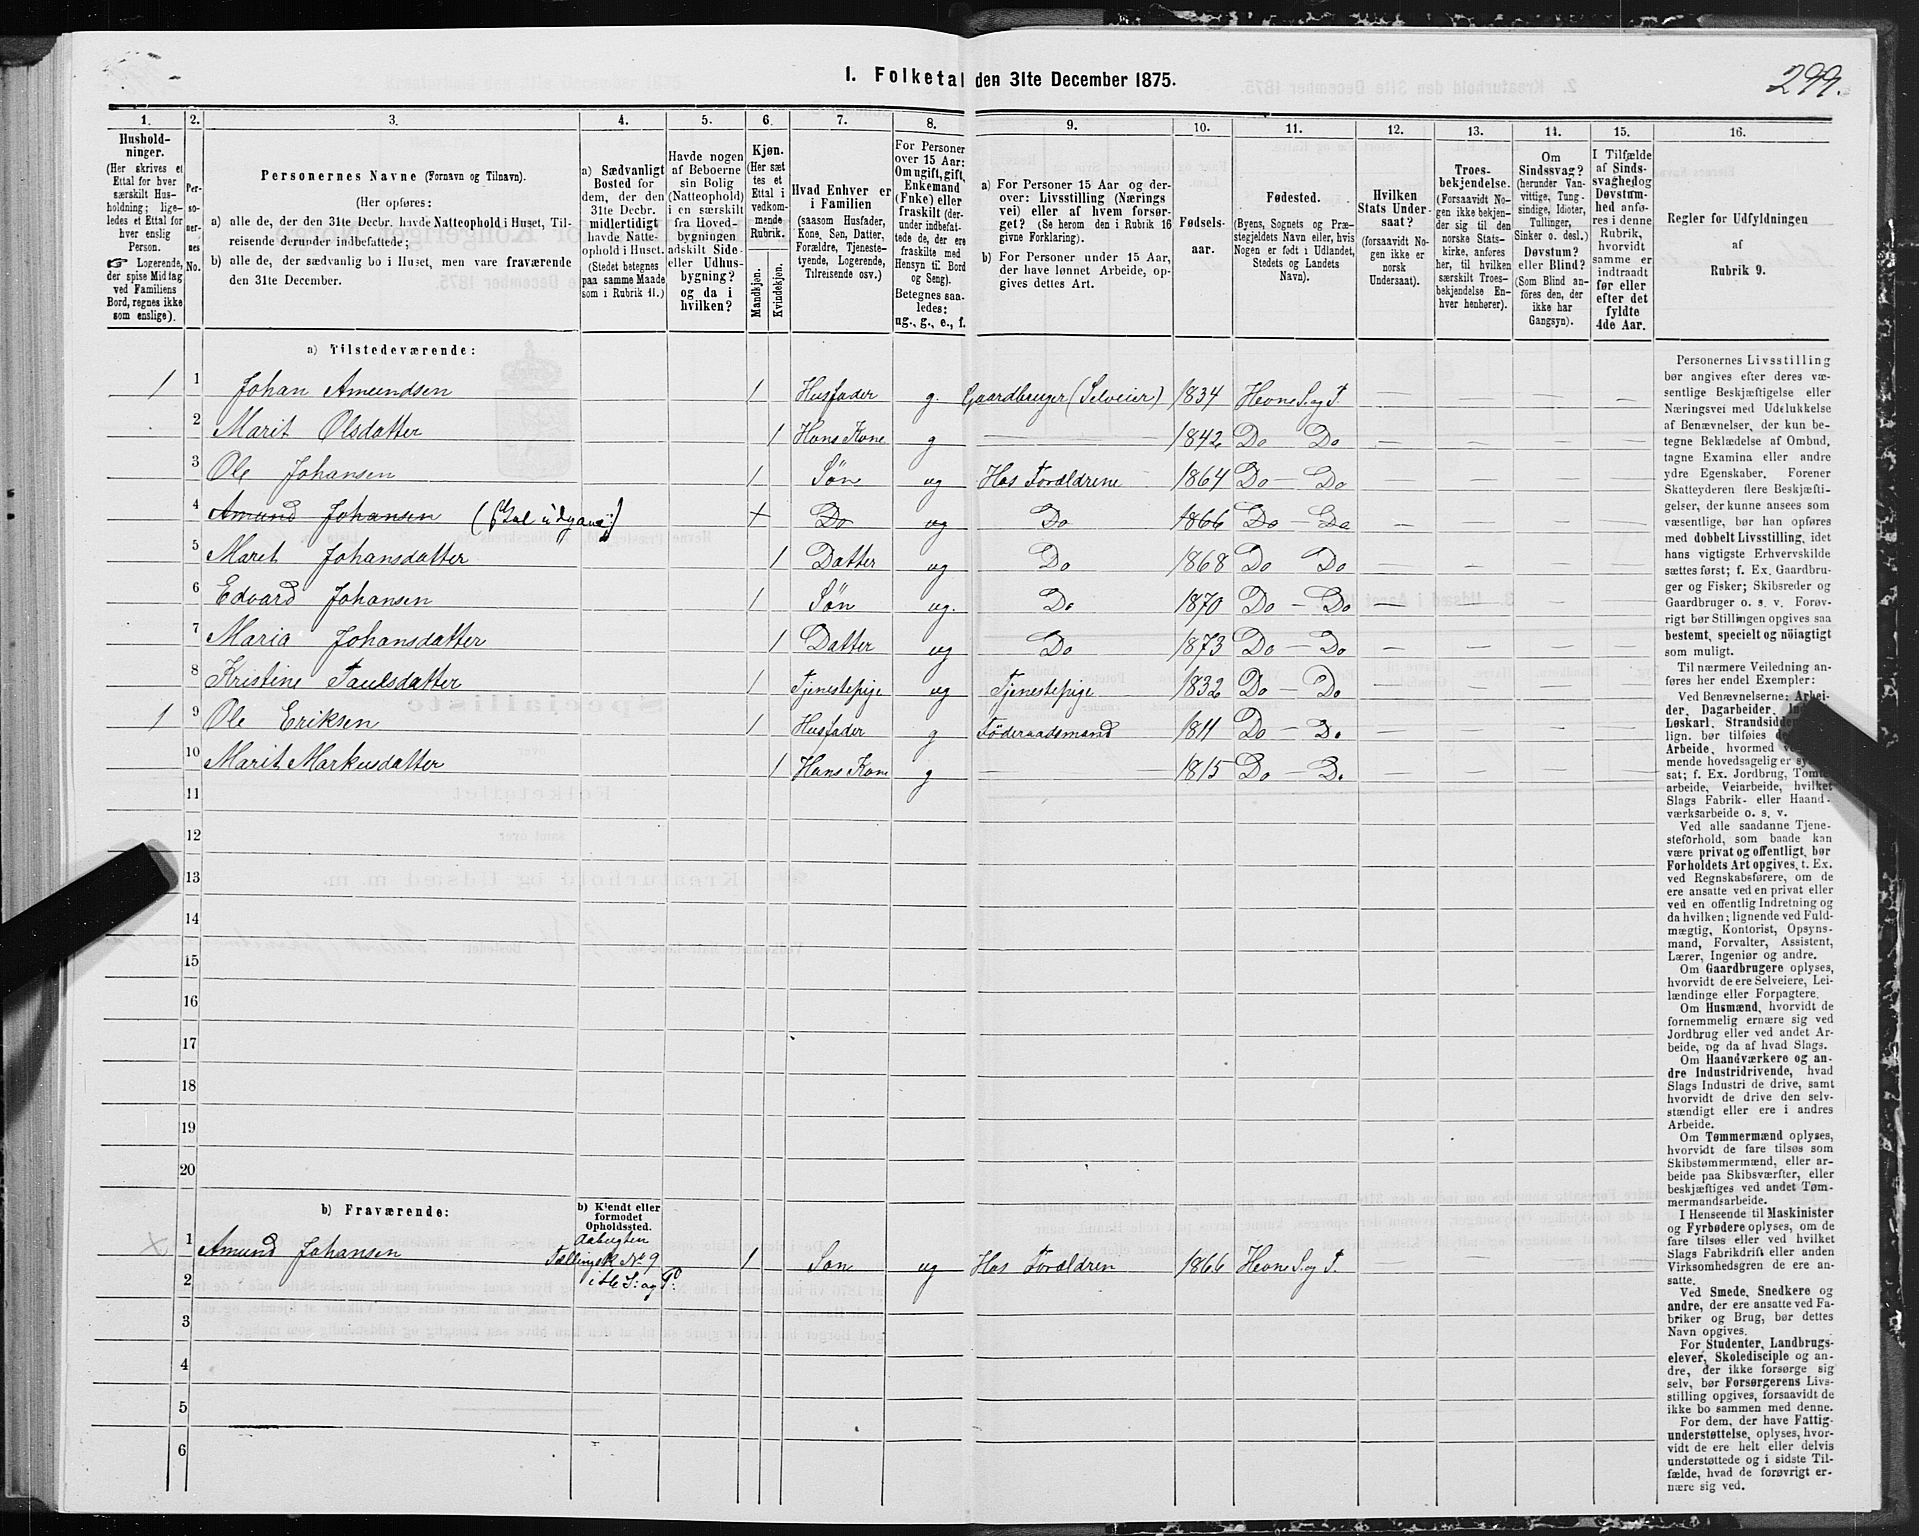 I. Folketal den 31te December 1875.
299.
1. 2. 3. 4. 5. 6. 7. 8. 9. 10. 11. 12. 13. 14. 15. 16.
Husholdninger.
(Her skrives et
Ettal for hver
særskilt Husholdning;
ligeledes et Ettal for
hver enslig
Person.
☞ Logerende,
der spise Middag
ved Familiens
Bord, regnes ikke
som enslige).
Personernes No.
Personernes Navne (Fornavn og Tilnavn).
(Her opføres:
a) alle de, der den 31te Decbr. havde Natteophold i Huset, Tilreisende derunder indbefattede;
b) alle de, der sædvanlig bo i Huset, men vare fraværende
den 31te December.
a) Sædvanligt
Bosted for
dem, der den
31te Decbr.
midlertidigt
havde Natteophold i Huset.
(Stedet betegnes
paa samme Maade
som i Rubrik 11.)
Havde nogen
af Beboerne
sin Bolig
(Natteophold)
i en særskilt
fra Hovedbygningen
adskilt Side-
eller Udhusbygning?
og da i
hvilken?
Kjøn.
(Her sættes et
Ettal i
vedkommende
Rubrik.
Mandkjøn.
Kvindekjøn.
Hvad Enhver er
i Familien
(saasom Husfader,
Kone, Søn, Datter,
Forældre, Tjenestetyende, Logerende,
Tilreisende osv.)
For Personer
over 15 Aar:
Om ugift, gift,
Enkemand
(Enke) eller
fraskilt (derunder indbefattede de, der ere
fraskilte med
Hensyn til Bord
og Seng).
Betegnes saaledes:
ug., g., e., f.
a) For Personer 15 Aar og derover: Livsstilling (Næringsvei) eller af hvem forsørget? (Se herom den i Rubrik 16
givne Forklaring).
b) For Personer under 15 Aar,
der have lønnet Arbeide, opgives dettes Art.
Fødselsaar.
Fødested.
(Byens, Sognets og Præstegjeldets Navn eller, hvis
Nogen er født i Udlandet,
Stedets og Landets
Navn).
Hvilken
Stats Undersaat?
(forsaavidt Nogen ikke er
norsk
Undersaat).
Troesbekjendelse.
(Forsaavidt Nogen ikke bekjender sig til den
norske Statskirke, anføres
her, til hvilken
særskilt Troesbekjendelse Enhver henhører).
Om
Sindssvag?
(herunder Vanvittige, Tungsindige, Idioter,
Tullinger,
Sinker o. desl.)
Døvstum?
eller Blind?
(Som Blind anføres den, der
ikke har
Gangsyn).
I Tilfælde
af Sindssvaghed og
Døvstumhed anføres i denne
Rubrik,
hvorvidt
samme er
indtraadt
før eller
efter det
fyldte
4de Aar.
Regler for Udfyldningen
af
Rubrik 9.
a) Tilstedeværende:
1 1 Johan Amundsen 1 Husfader g. Gaardbruger (Selveier) 1834 Hevne S. og P. — — — —
2 Marit Olsdatter 1 Hans Kone g — 1842 Do — Do — — — —
3 Ole Johansen 1 Søn ug Hos Forældrene 1864 Do — Do — — — —
4 Amund Johansen 1 Do ug Do 1866 Do — Do — — — —
5 Maret Johansdatter 1 Datter ug Do 1868 Do Do — — — —
6 Edvard Johansen 1 Søn ug. Do 1870 Do — Do — — — —
7 Maria Johansdatter 1 Datter ug Do 1873 Do — Do — — — —
8 Kristine Paulsdatter 1 Tjenestepige ug Tjenestepige 1832 Do — Do — — — —
1 9 Ole Eriksen 1 Husfader g Föderaadsmand 1811 Do — Do — — — —
10 Marit Markusdatter 1 Hans Kone g — 1815 Do — Do — — — —
11
12
13
14
15
16
17
18
19
20
b) Fraværende:
b) Kjendt eller
formodet
Opholdssted.
x 1 Amund Johansen 1 Søn ug Hos Forældren 1866 Hevne S. og P. — —
2
3
4
5
6
Personernes Livsstilling
bør angives efter deres væsentlige Beskjæftigelse eller
Næringsvei med Udelukkelse
af Benævnelser, der kun betegne Beklædelse af Ombud,
tagne Examina eller andre
ydre Egenskaber. Forener
Skatteyderen flere Beskjæftigelser, der kunne ansees som
væsentlige, bør han opføres
med dobbelt Livsstilling, idet
hans vigtigste Erhvervskilde
sættes først; f. Ex. Gaardbruger og Fisker; Skibsreder og
Gaardbruger o. s. v. Forøvrigt bør Stillingen opgives saa
bestemt, specielt og nöiagtigt
som muligt.
Til nærmere Veiledning anføres her endel Exempler:
Ved Benævnelserne: Arbeider, Dagarbeider,
Løskarl, Strandsidder
lign. bør tilføies
Arbeide, hvormed
mende hovedsagelig er
sat; f. Ex. Jordbrug, Tomtearbeide, Veiarbeide, hvilket
Slags Fabrik- eller Haandværksarbeide o. s. v.
Ved alle saadanne Tjenesteforhold, som baade kan
være privat og offentligt, bør
Forholdets Art opgives, t. Ex.
ved Regnskabsførere, om de
ere ansatte ved en privat eller
ved en offentlig Indretning og
da hvilken; lignende ved Fuldmægtig, Kontorist, Opsynsmand, Forvalter, Assistent,
Lærer, Ingeniør og andre.
Om Gaardbrugere oplyses,
hvorvidt de ere Selveiere, Leilændinge eller Forpagtere.
Om Husmænd, hvorvidt de
fornemmelig ernære sig ved
Jordbrug eller ved andet Arbeide, og da af hvad Slags.
Om Haandværkere og andre Industridrivende, hvad
Slags Industri de drive, samt
hvorvidt de drive den selvstændigt eller ere i andres
Arbeide.
Om Tømmermænd oplyses,
hvorvidt de fare tilsøs som
Skibstømmermænd, eller arbeide paa Skibsværfter, eller
beskjæftiges ved andet Tømmermandsarbeide.
I Henseende til Maskinister
og Fyrbødere oplyses, om de
fare tilsøs eller ved hvilket
Slags Fabrikdrift eller anden
Virksomhedsgren de ere ansatte.
Ved Smede, Snedkere og
andre, der ere ansatte ved Fabriker og Brug, bør dettes
Navn opgives.
For Studenter, Landbrugselever, Skoledisciple og andre, der ikke forsørge sig
selv, bør Forsørgerens Livsstilling opgives, forsaavidt de
ikke bo sammen med denne.
For dem, der have Fattigunderstøttelse, oplyses, hvorvidt de ere helt eller delvis
understøttede og i sidste Tilfælde, hvad de forøvrigt ernære sig ved.